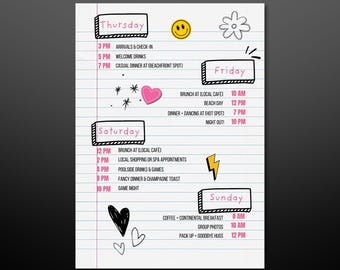 Thursday
3 PM ARRIVALS & CHECK-IN
5 PM WELCOME DRINKS
7 PM CASUAL DINNER (BEACHFRONT SPOT)
Friday
BRUNCH AT (LOCAL CAFÉ) 10 AM
BEACH DAY 12 PM
DINNER + DANCING AT (HOT SPOT) 7 PM
NIGHT OUT! 10 PM
Saturday
12 PM BRUNCH AT (LOCAL CAFÉ)
2 PM LOCAL SHOPPING OR SPA APPOINTMENTS
4 PM POOLSIDE DRINKS & GAMES
8 PM FANCY DINNER & CHAMPAGNE TOAST
10 PM GAME NIGHT
Sunday
COFFEE + CONTINENTAL BREAKFAST 9 AM
GROUP PHOTOS 10 AM
PACK UP + GOODBYE HUGS 12 PM